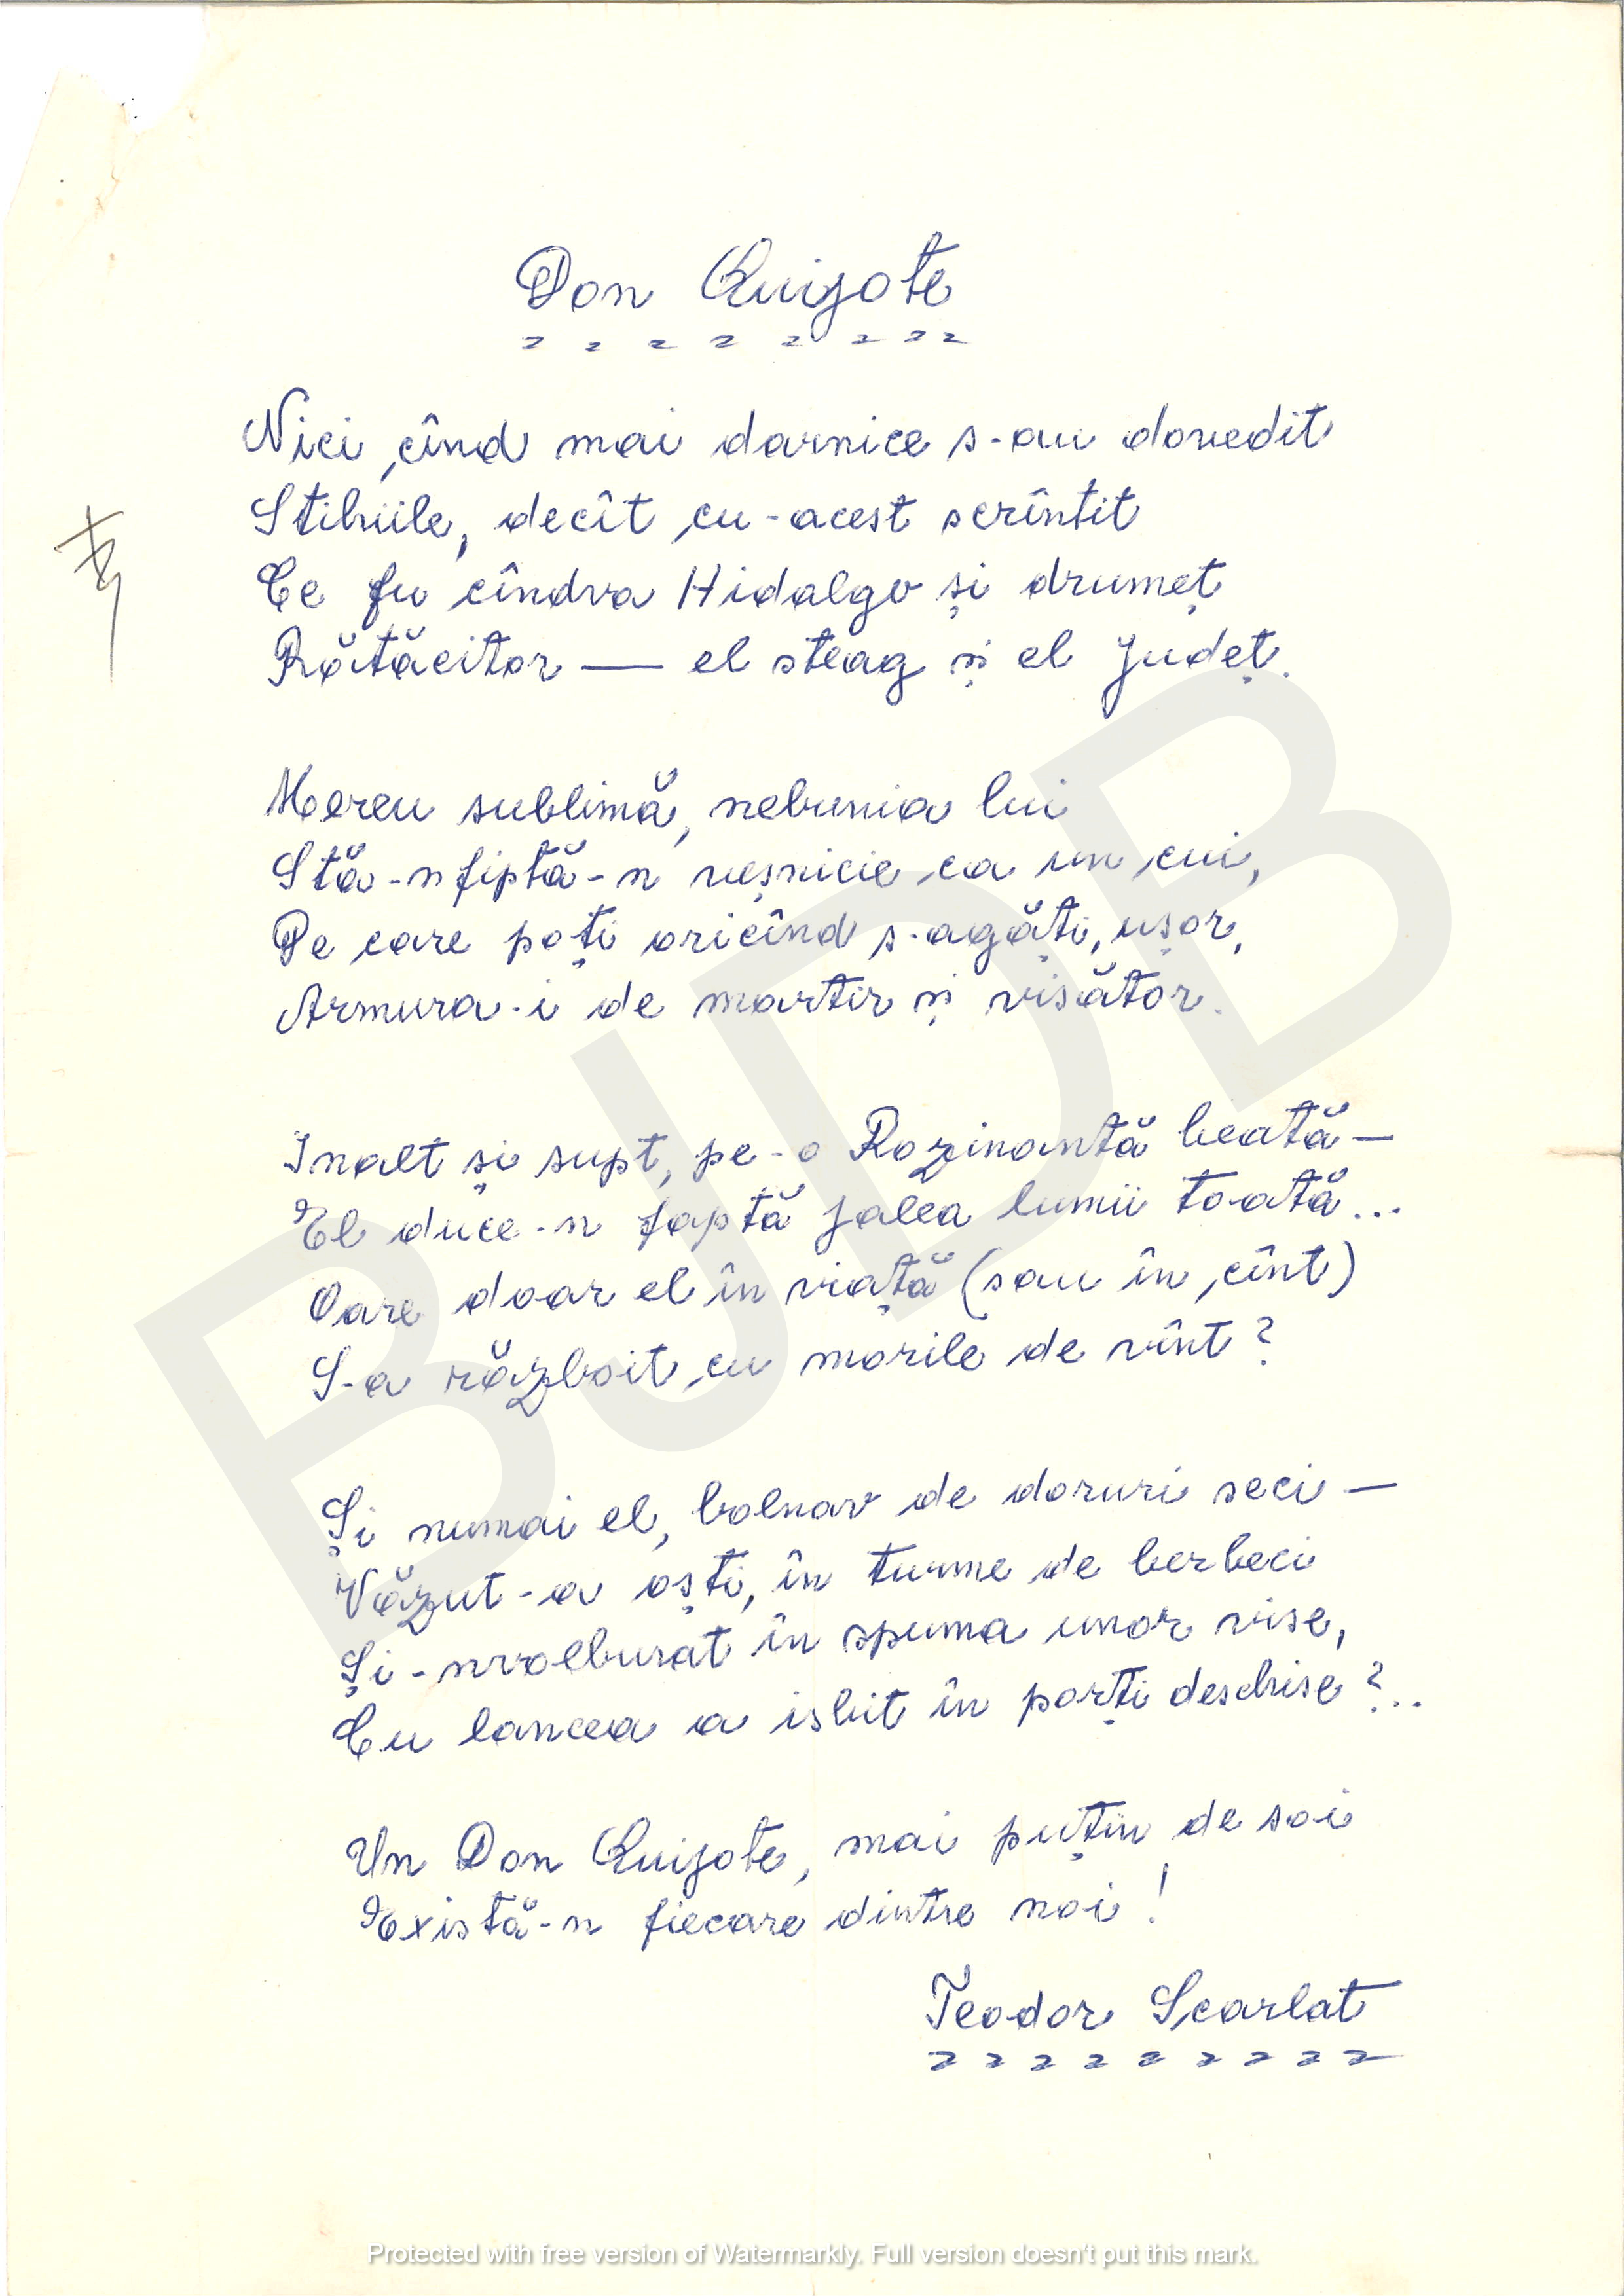 Don Quijote
Nici cînd mai darnice s-au dovedit
Stihiile, decît cu-acest scrîntit
Ce fu cîndva Hidalgo și drumeț
Rătăcitor — el steag și el județ.
Mereu sublimă, nebunia lui
Stă-nfiptă-n veșnicie ca un cui,
De care poți oricînd s-agăți, ușor,
Armura-i de martir și visător.
Inalt și supt, pe-o Rozinantă beată —
El duce-n faptă jalea lumii toată...
Oare doar el în viață (sau în cînt)
S-a războit cu morile de vînt?
Și numai el, bolnav de doruri seci —
Văzut-a oști, în turme de berbeci
Și-nvolburat în spuma unor vise,
Cu lancea a isbit în porți deschise?..
Un Don Quijote, mai puțin de soi
Există-n fiecare dintre noi!
Teodor Scarlat
BJDB
Protected with free version of Watermarkly. Full version doesn't put this mark.